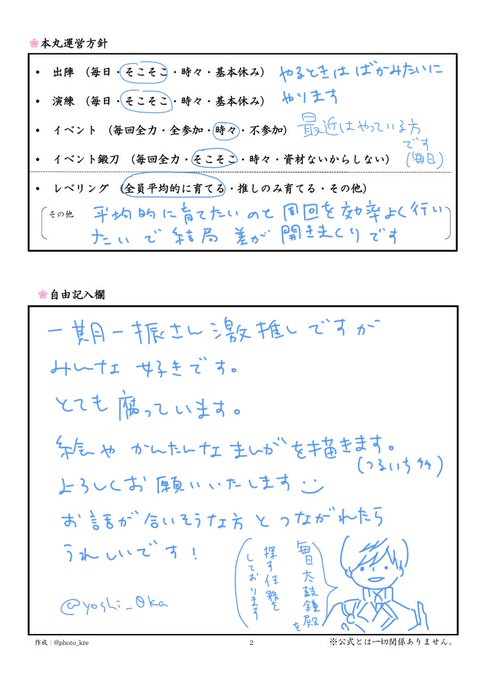 🌸本丸運営方針
• 出陣（毎日・そこそこ・時々・基本休み） やるときは ばかみたいに
• 演練（毎日・そこそこ・時々・基本休み） やります
• イベント（毎回全力・全参加・時々・不参加） 最近はやっている方
です
• イベント鍛刀（毎回全力・そこそこ・時々・資材ないからしない） （毎日）
• レベリング（全員平均的に育てる・推しのみ育てる・その他）
その他 平均的に育てたいのと周回を効率よく行い
たいで結局 差が 開きまくりです
🌸自由記入欄
一期一振さん激推しですが
みんな 好きです。
とても 腐っています。
絵や かんたんなまんがを描きます。
（つるいち多）
よろしくお願いいたします
お話が合いそうな方とつながれたら
うれしいです！
毎日太鼓鐘殿を
探す任務を
しております
@yoshi_oka
作成：@photo_kre
2
※公式とは一切関係ありません。